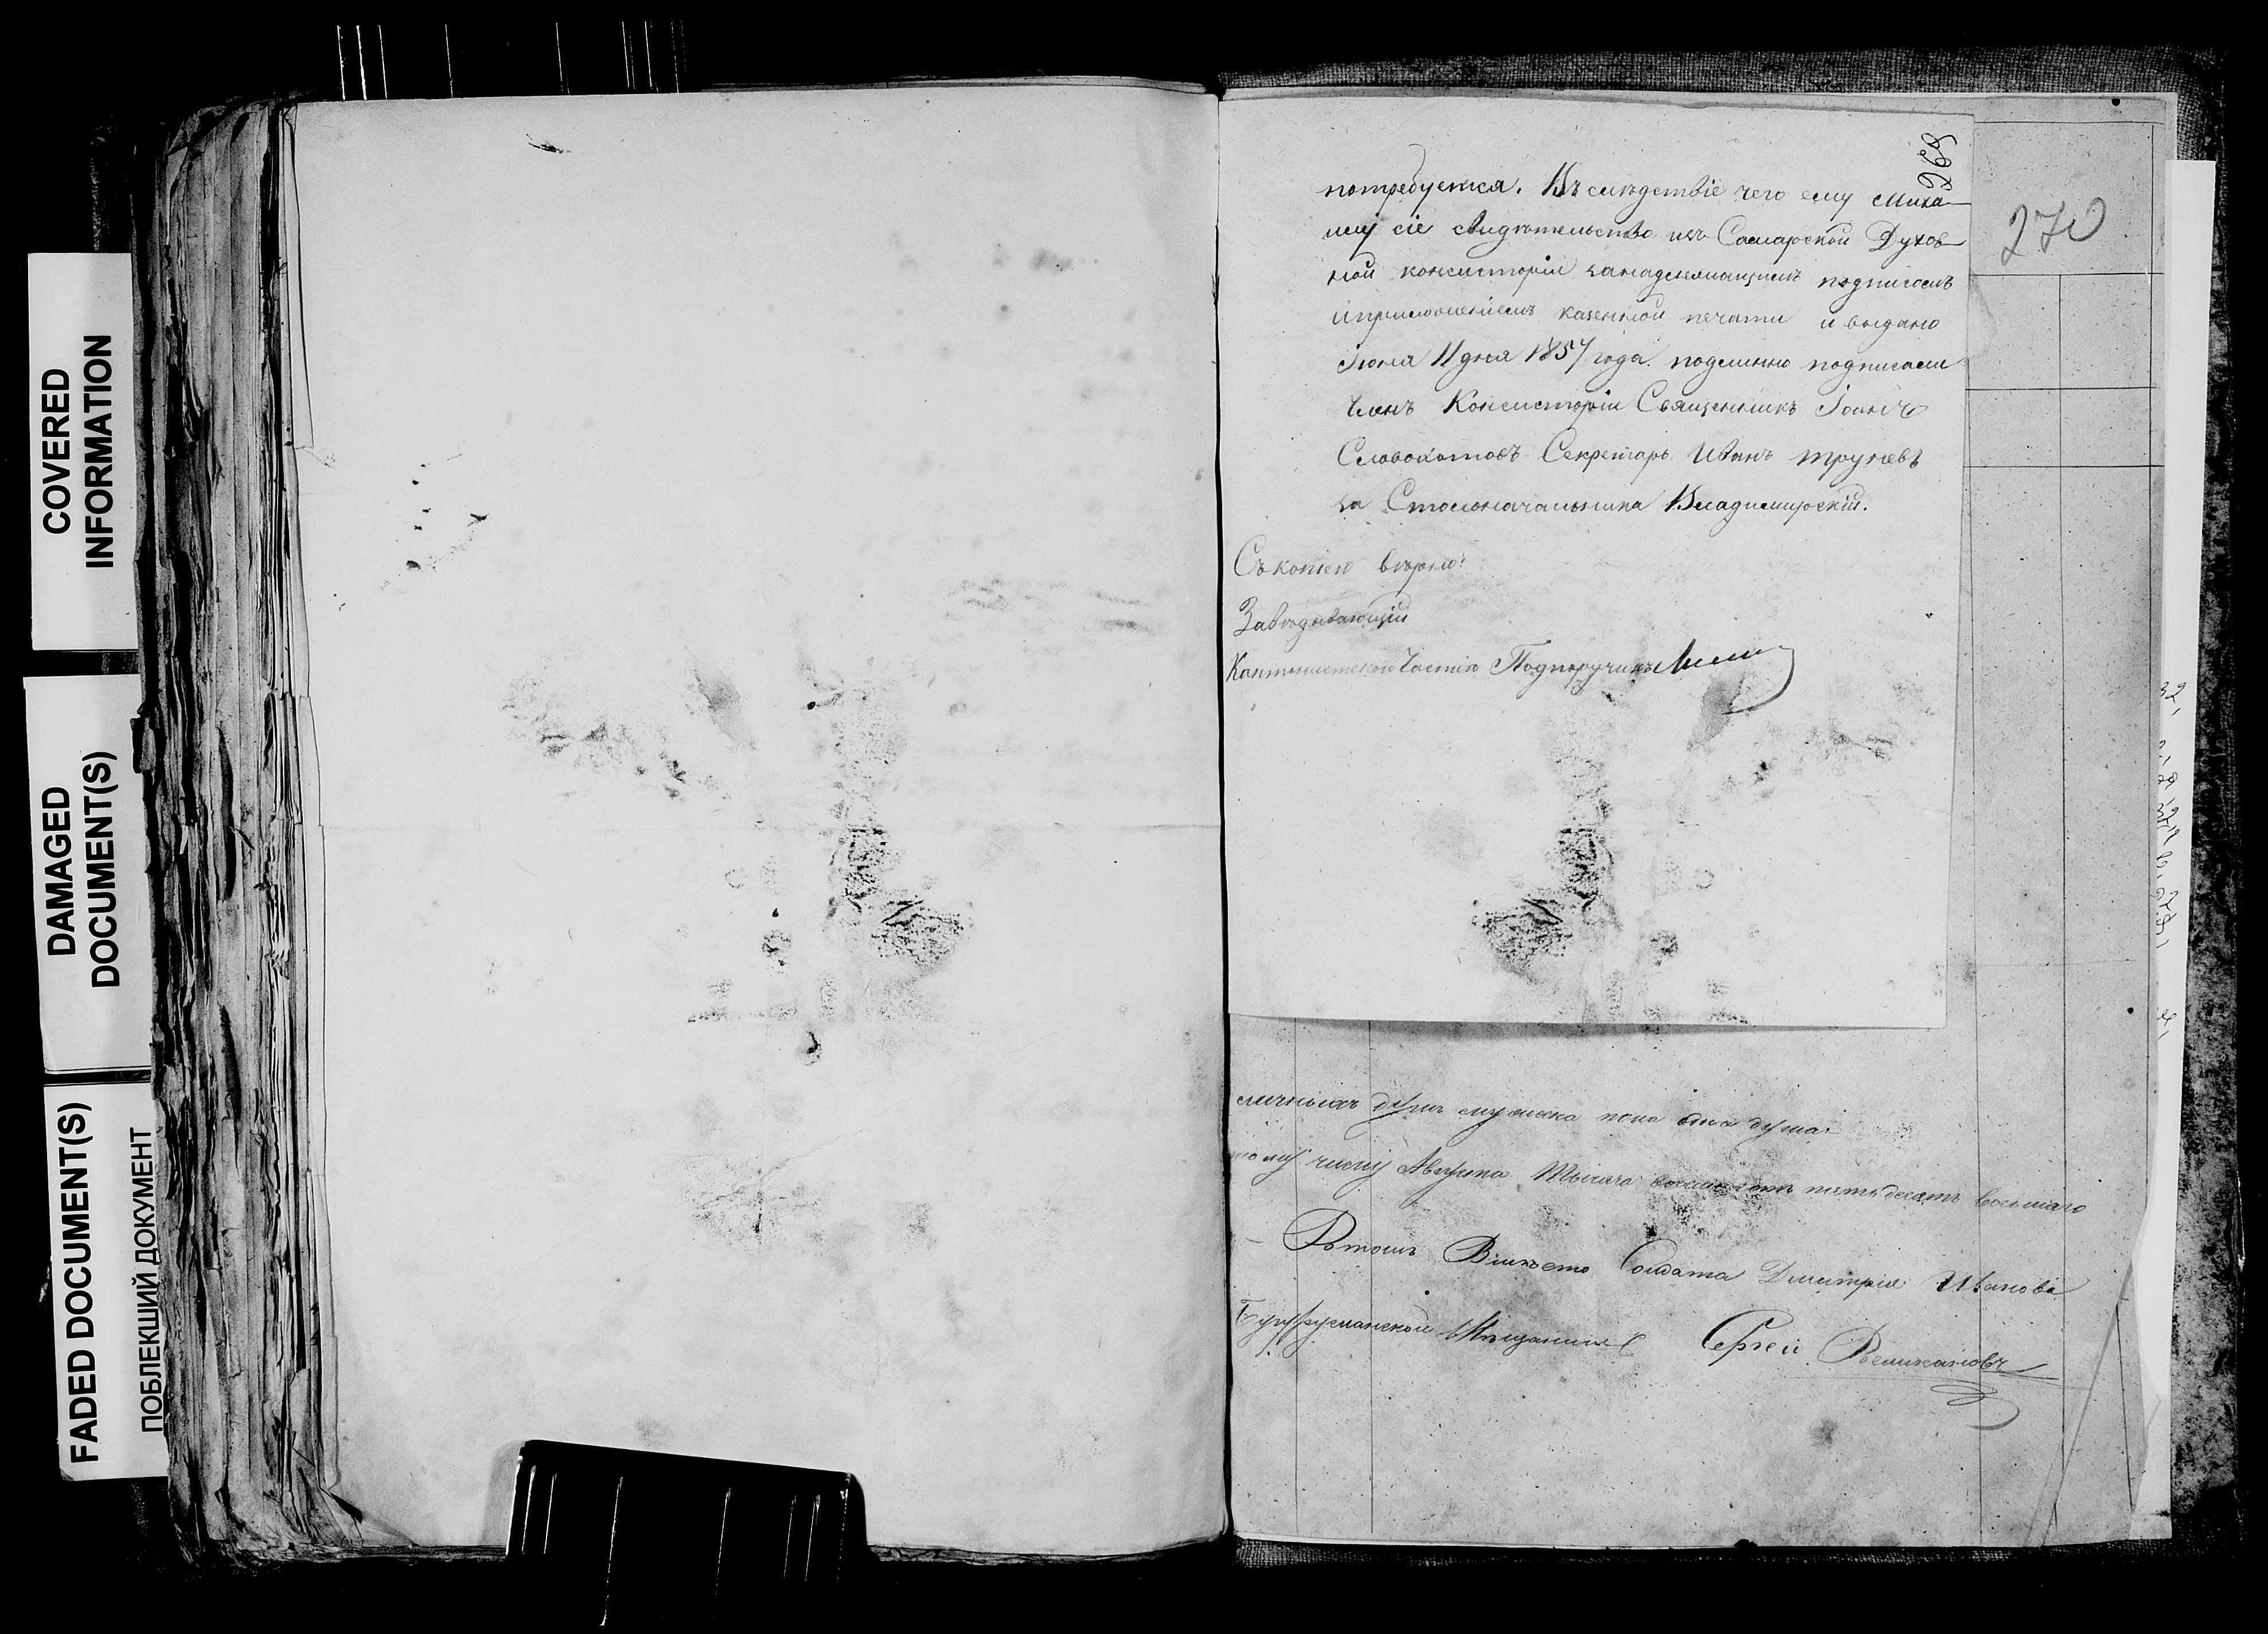 COVERED
INFORMATION
DAMAGED
DOCUMENT(S)
FADED DOCUMENT(S)
ПОБЛЕКШИЙ ДОКУМЕНТ
269
270
потребуется. Въ следствіе чего ему Миха-
илу сіе свидѣтельство изъ Самарской Духов-
ной консисторіи занадлежащимъ подписомъ
иприложеніемъ казенной печати и выдано
Іюня 11 дня 1857 года. подлинно подписали
Членъ Консисторіи Священникъ Іоаннъ
Словохотовъ Секретарь Иванъ
за Столоначальника Владимирскій.
Съ копіею вѣрно:
Завѣдывающій
Кантонистскою Частію Подпоручикъ
душъ мужска пола одна душа:
числу Августа Тысяча восемь сотъ пятьдесятъ восьмаго
Вмѣсто Солдата Дмитрія Иванова
Бугурусланской Мещанинъ Сергей